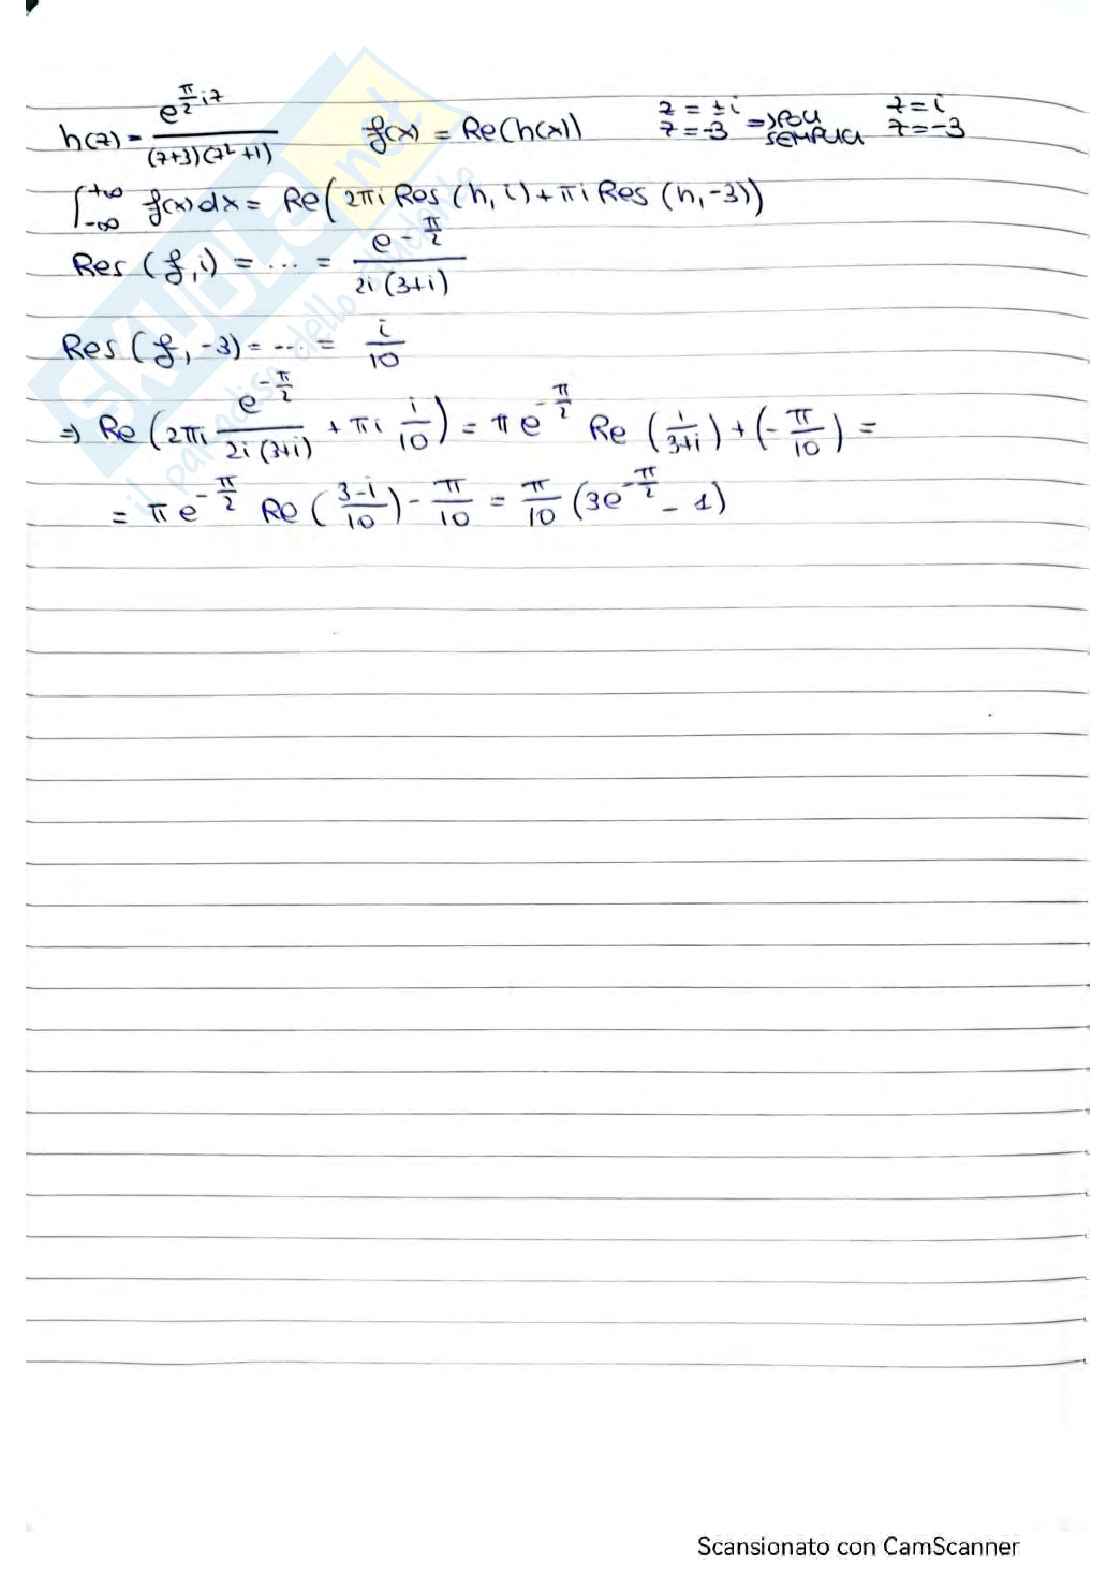 h(z) = e^{π/2 iz} / (z+3)(z²+1)    f(x) = Re(h(x))    z = ±i z = -3 => POLI SEMPLICI    z = i z = -3
∫_{-∞}^{+∞} f(x)dx = Re(2πi Res(h, i) + πi Res(h, -3))
Res(f, i) = ... = e^{-π/2} / 2i(3+i)
Res(f, -3) = ... = i/10
=> Re(2πi e^{-π/2} / 2i(3+i) + πi i/10) = π e^{-π/2} Re(1/3+i) + (-π/10) =
= π e^{-π/2} Re(3-i/10) - π/10 = π/10 (3e^{-π/2} - 1)
SKUOLA.net
il paradiso dello studente
Scansionato con CamScanner